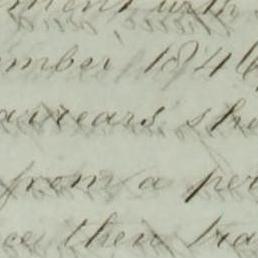 ment with
mber 1846
arrears, sh
from a per
ce then tra